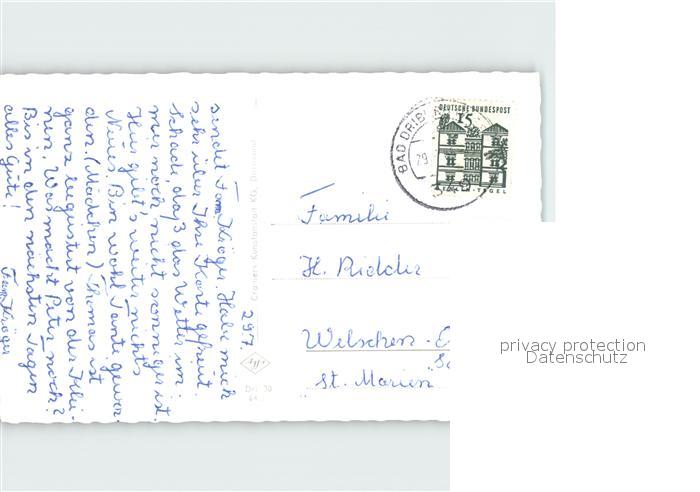 29.7.
sendet Fam. Kröger. Habe mich
sehr über Ihre Karte gefreut.
Schade, daß das Wetter im-
mer noch nicht sonniger ist.
Hier gibt's weiter nichts
Neues. Bin wohl Tante gewor-
den. (Mädchen) Thomas ist
ganz begeistert von der Klei-
nen. Was macht Peter noch?
Bis in den nächsten Tagen
alles Gute!
Fam. Kröger
Cramers Kunstanstalt KG, Dortmund
DEUTSCHE BUNDESPOST
15
TEGEL
BAD DRIB
29.
Familie
H. Ridder
Welschen-E
St. Marien
privacy protection
Datenschutz